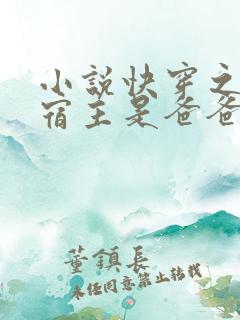 小说快穿之
宿主是爸爸
董镇长
未经同意禁止转载